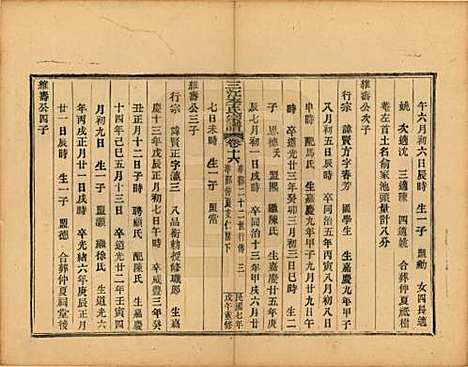 午六月初六日辰時 生一子 盟勳 女四長適
姚 次適沈 三適陳 四適姚 合葬仲夏祇樹
菴左首土名俞家池頭量計八分
維壽公次子
行宗 諱賢芳字春芳 國學生 生嘉慶九年甲子九月廿九日午
八月初五辰時 卒同治五年丙寅八月初五日
申時 配馬氏 生嘉慶九年甲子九月廿九日午
時 卒道光廿三年癸卯三月初三日巳時 生二
子 恩德 盟 繼陳氏 生嘉慶廿五年庚
辰七月初十日戌時 卒同治十三年
三江李氏宗譜 卷十六
民國七年戊午重修
七日未時 生一子 盟當
維壽公三子
行宗 諱賢正字瀛三 八品銜賴授修職郎 生嘉
慶十三年戊辰正月初七日午時 卒咸豐三年癸
丑正月十二日子時 聘顧氏 配陳氏 生嘉慶
十四年己巳五月十三日 卒道光廿二年壬寅四
月初九日 生一子 盟德 繼徐氏 生道光六
年丙戌正月廿一日戌時 卒光緒六年庚辰正月
廿一日辰時 生一子 盟德 合葬仲夏祠堂後
維壽公四子